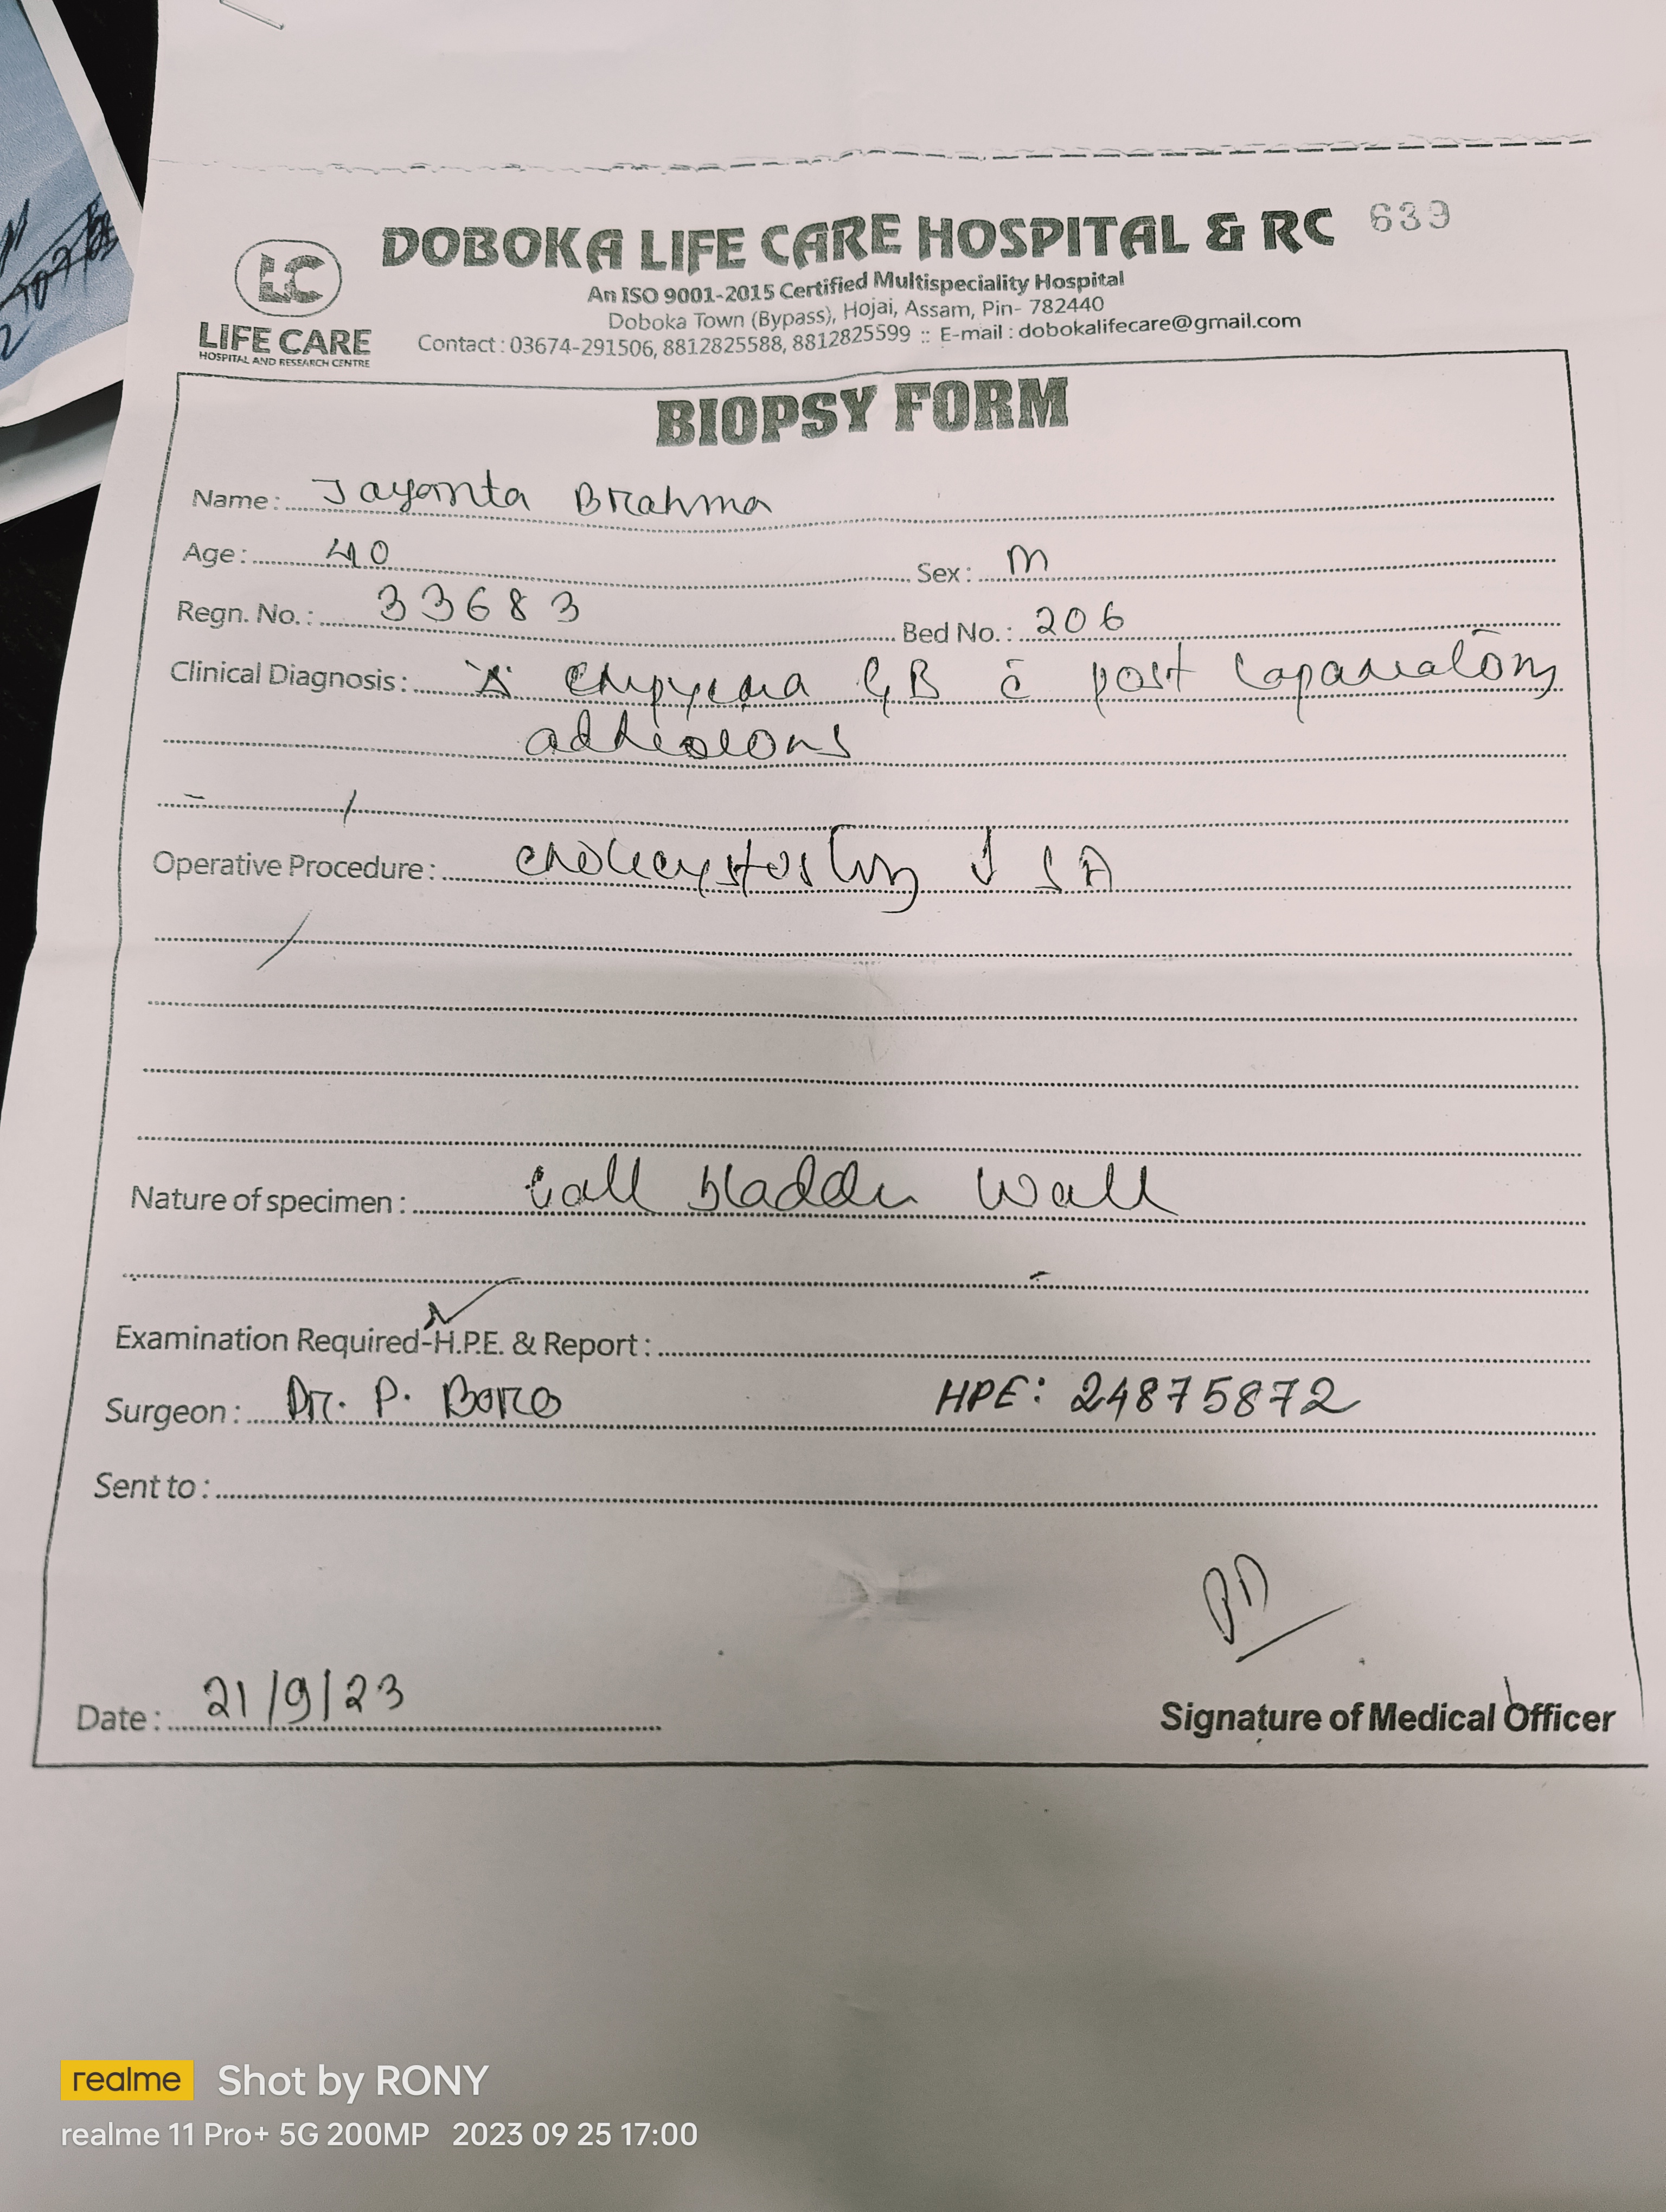 DOBOKA LIFE CARE HOSPITAL & RC 639
LC
LIFE CARE
HOSPITAL AND RESEARCH CENTRE
An ISO 9001-2015 Certified Multispeciality Hospital
Doboka Town (Bypass), Hojai, Assam, Pin- 782440
Contact : 03674-291506, 8812825588, 8812825599 :: E-mail : dobokalifecare@gmail.com
BIOPSY FORM
Name : Jayanta Brahma
Age : 40 Sex : M
Regn. No. : 33683 Bed No. : 206
Clinical Diagnosis : empyema GB c̄ post laparatomy
adhesions
Operative Procedure : cholecystostomy ↓ SA
Nature of specimen : Gall bladder wall
Examination Required-H.P.E. & Report :
Surgeon : Dr. P. Boro HPE: 24875872
Sent to :
Date : 21/9/23
Signature of Medical Officer
realme Shot by RONY
realme 11 Pro+ 5G 200MP 2023 09 25 17:00